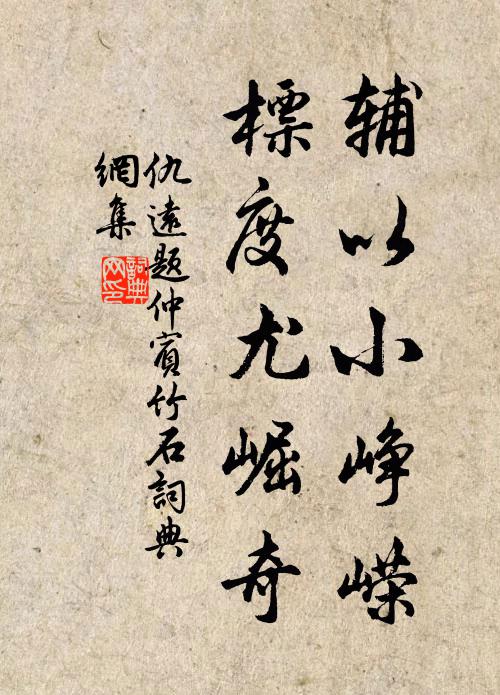 辅以小峥嵘
標度尤崛奇
仇遠題仲賓竹石詞典
網集
詞典
网印